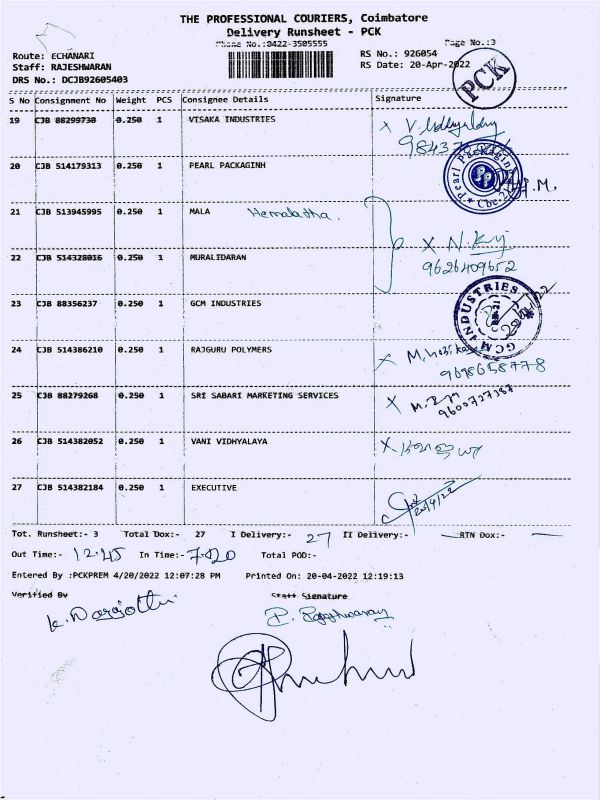 THE PROFESSIONAL COURIERS, Coimbatore
Delivery Runsheet - PCK
Phone No.:0422-3505555 Page No.:3
Route: ECHANARI RS No.: 926054
Staff: RAJESHWARAN RS Date: 20-Apr-2022
DRS No.: DCJB92605403
PCK
S No Consignment No Weight PCS Consignee Details Signature
19 CJB 88299730 0.250 1 VISAKA INDUSTRIES
20 CJB 514179313 0.250 1 PEARL PACKAGINH
Pearl Packaging
21 CJB 513945995 0.250 1 MALA Hemalatha.
22 CJB 514328016 0.250 1 MURALIDARAN
9626409652
23 CJB 88356237 0.250 1 GCM INDUSTRIES
GCM INDUSTRIES
24 CJB 514386210 0.250 1 RAJGURU POLYMERS
9698658778
25 CJB 88279268 0.250 1 SRI SABARI MARKETING SERVICES
9600727387
26 CJB 514382052 0.250 1 VANI VIDHYALAYA
27 CJB 514382184 0.250 1 EXECUTIVE
20/4/22
Tot. Runsheet:- 3 Total Dox:- 27 I Delivery:- 27 II Delivery:- RTN Dox:-
Out Time:- 12.45 In Time:- 7.20 Total POD:-
Entered By :PCKPREM 4/20/2022 12:07:28 PM Printed On: 20-04-2022 12:19:13
Verified By Staff Signature